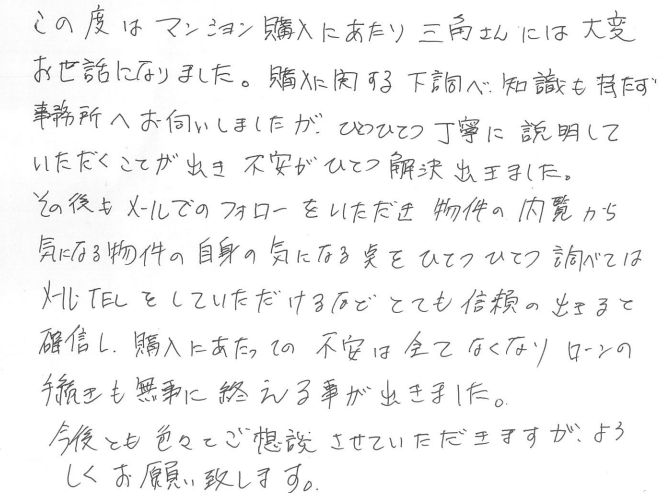 この度はマンション購入にあたり三角さんには大変
お世話になりました。購入に関する下調べ、知識も持たず
事務所へお伺いしましたが、ひとつひとつ丁寧に説明して
いただくことが出き不安がひとつ解決出来ました。
その後もメールでのフォローをいただき物件の内覧から
気になる物件の自身の気になる点をひとつひとつ調べては
メール・TELをしていただけるなどとても信頼の出きると
確信し、購入にあたっての不安は全てなくなりローンの
手続きも無事に終える事が出きました。
今後とも色々とご想談させていただきますが、よろ
しくお願い致します。